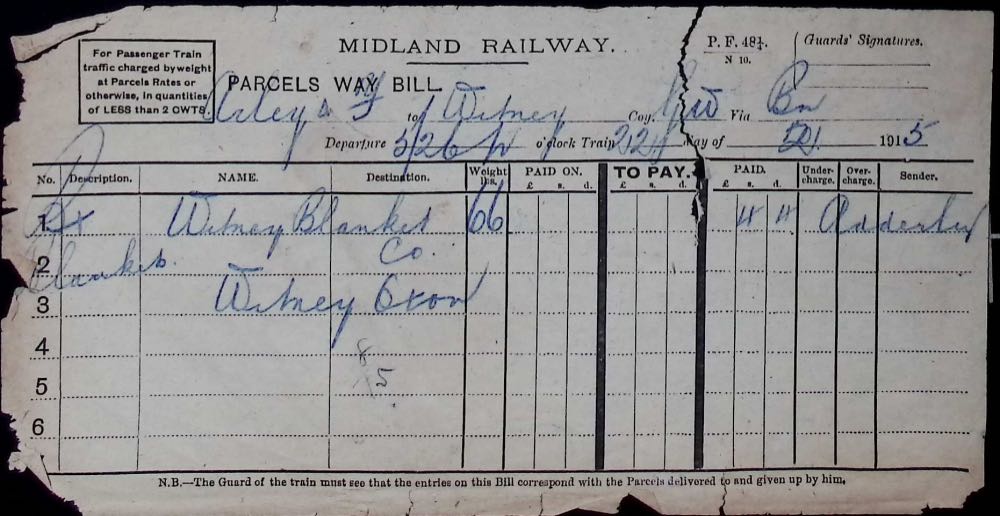 For Passenger Train
traffic charged by weight
at Parcels Rates or
otherwise, in quantities
of LESS than 2 CWTS.
MIDLAND RAILWAY.
PARCELS WAY BILL.
P. F. 48¼.
N 10.
Guards' Signatures.
Arley & F to Witney Coy. GW Via Bn
Departure 5/26 p o'clock Train 22 day of 1915
No. Description. NAME. Destination. Weight lbs. PAID ON. TO PAY. PAID. Under-charge. Over-charge. Sender.
£ s. d. £ s. d. £ s. d.
1 Witney Blanket 66 4 4 Adderley
2 Blankets Co.
3 Witney Oxon
4
5
6
N.B.—The Guard of the train must see that the entries on this Bill correspond with the Parcels delivered to and given up by him.